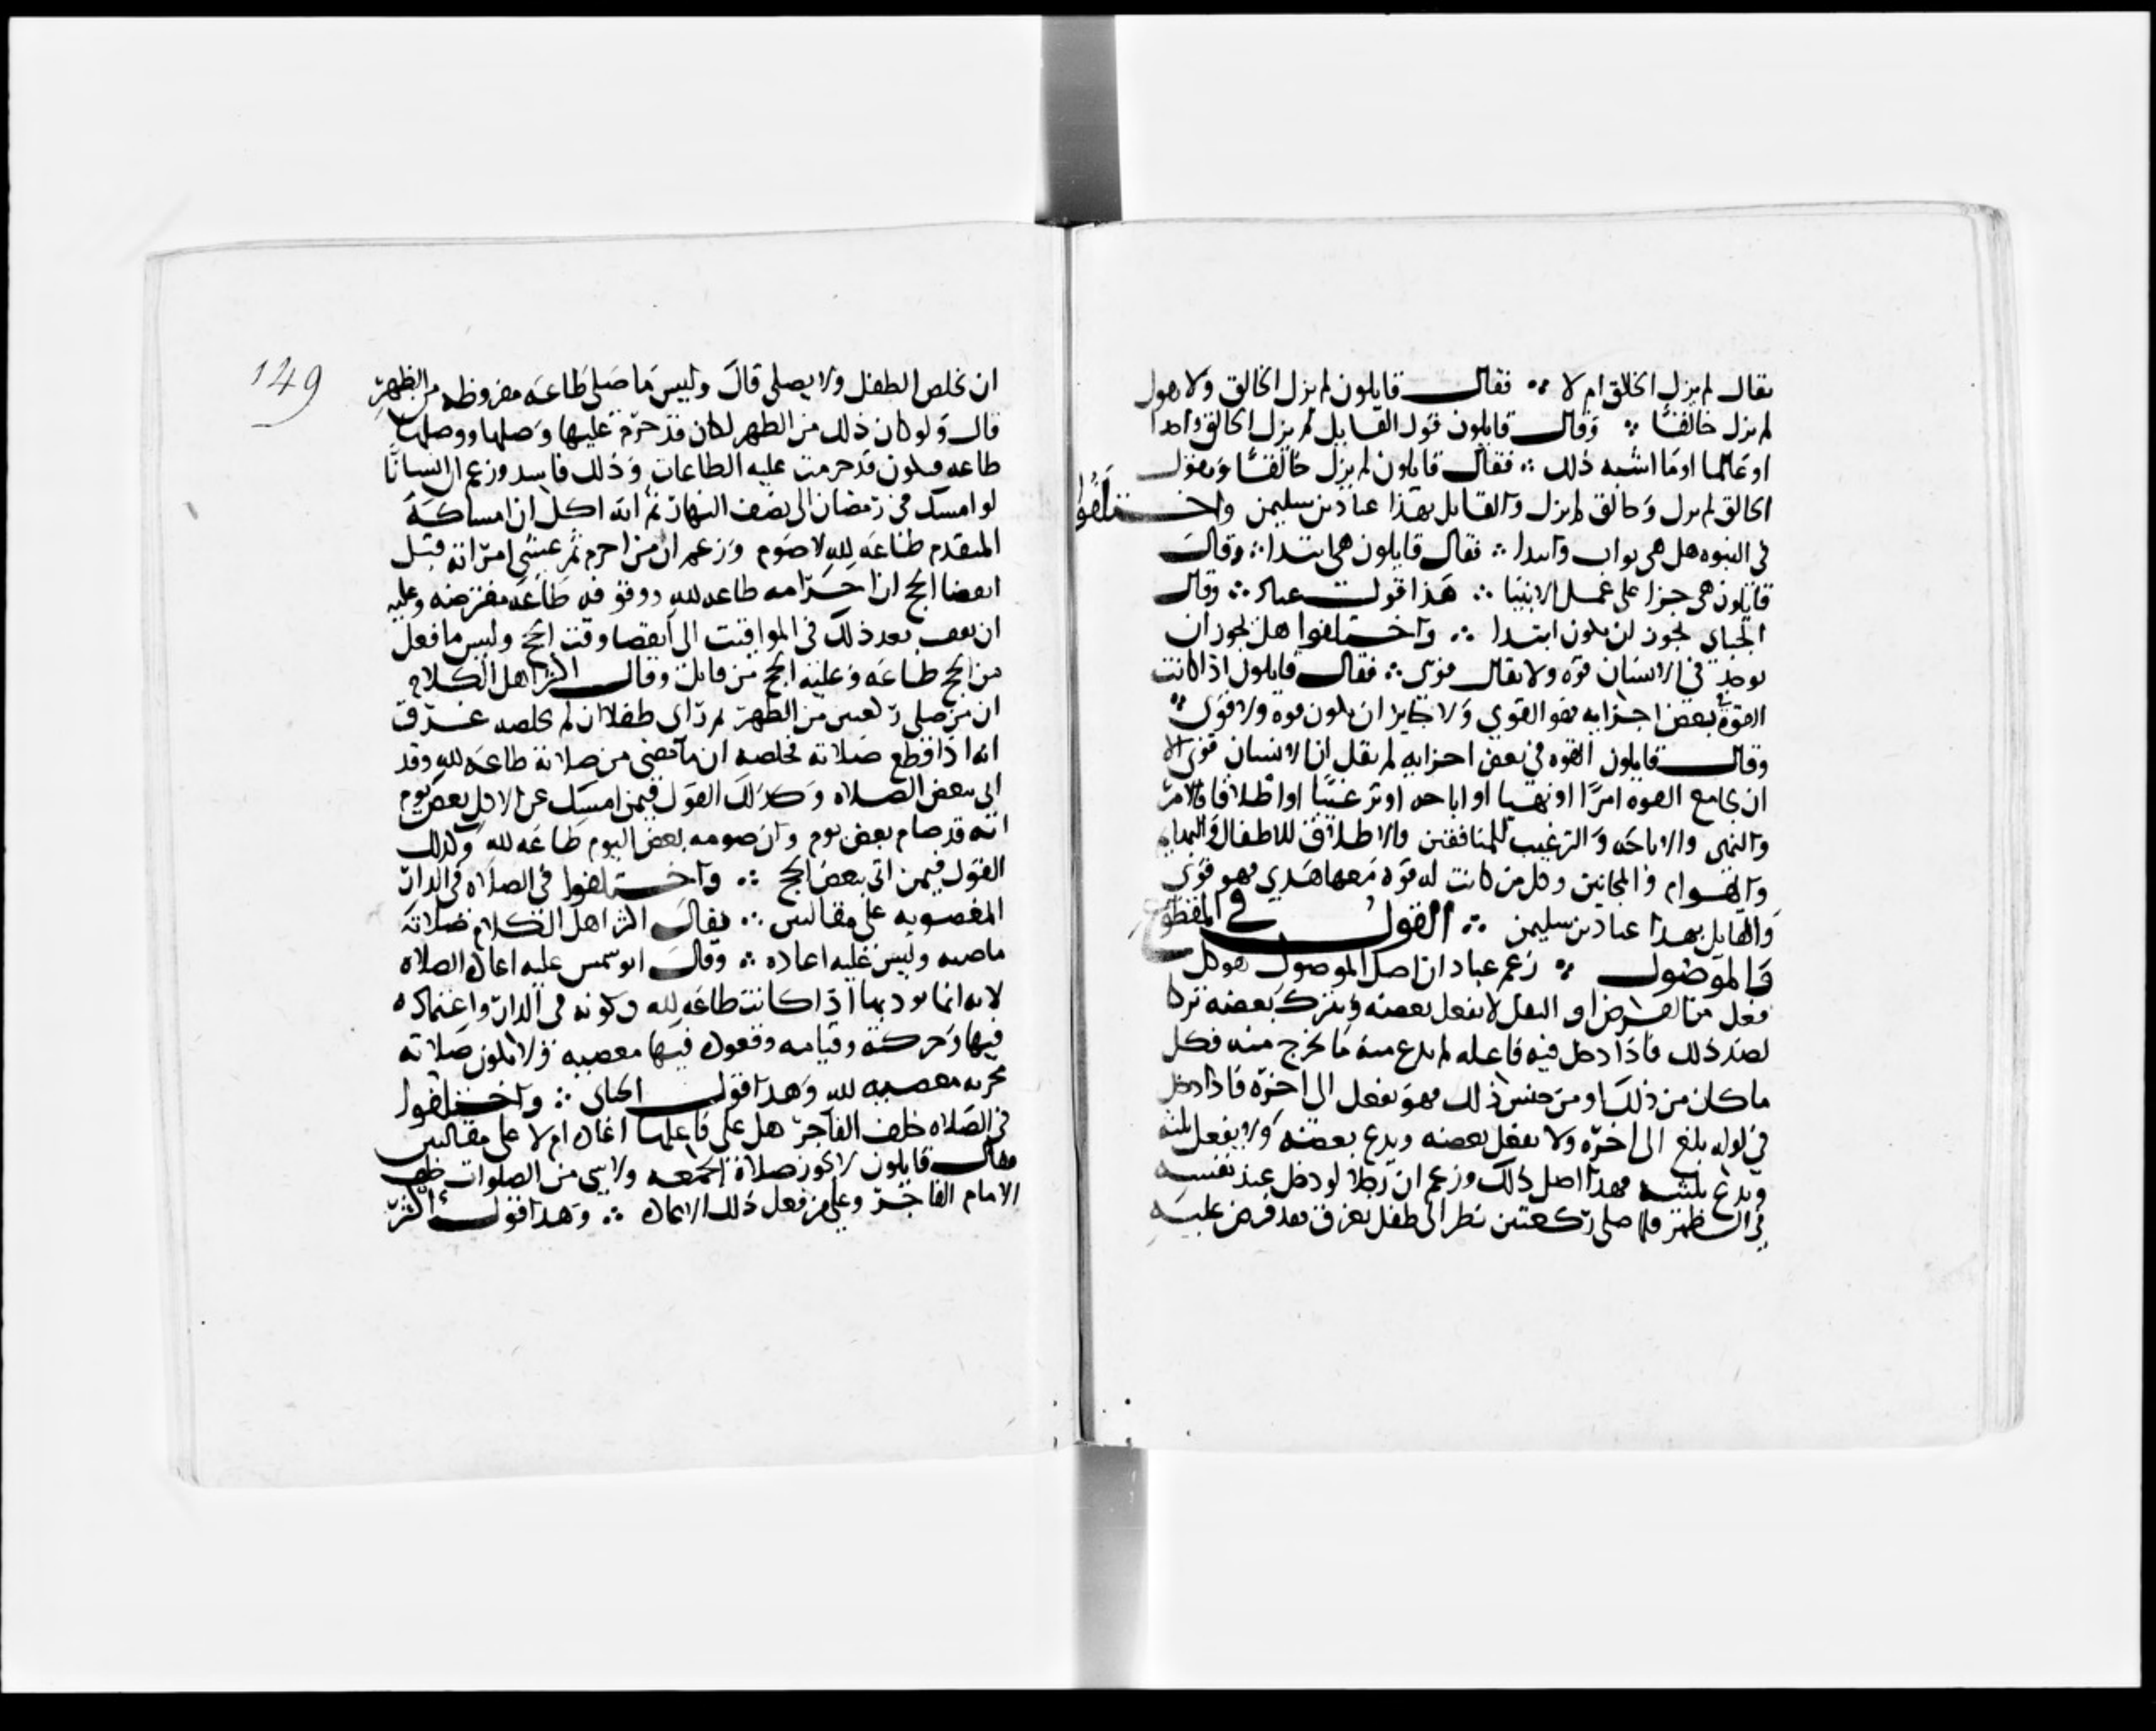 يقال لم يزل الخلق ام لا ∴ فقال قايلون لم يزل الخالق ولا نقول
لم يزل خالقًا ∴ وقال قايلون قول القايل لم يزل الخالق واحدا
او عالما او ما اشبه ذلك ∴ فقال قايلون لم يزل خالقًا ونقول
الخالق لم يزل وخالق لم يزل والقايل بهذا عباد بن سليمن واختلفوا
في النبوه هل هي ثواب وابتدا ∴ فقال قايلون هي ابتدا ∴ وقال
قايلون هي جزا على عمل الانبيا ∴ هذا قول عباد ∴ وقال
الجباي يجوز ان يكون ابتدا ∴ واختلفوا هل يجوز ان
يوجد في الانسان قوه ولا يقال قوى ∴ فقال قايلون اذا كانت
القوة في بعض اجزايه فهو القوي ولا جايز ان يكون قوه ولا قوى ∴
وقال قايلون القوه في بعض اجزايه لم يقل ان الانسان قوى الا
ان يجامع القوه امرًا او نهيا او اباحه او ترغيبًا او اطلاقا فالامر
والنهى والاباحه والترغيب للمنافقين والاطلاق للاطفال والبهايم
والهوام والمجانين وكل من كانت له قوة معها هدي فهو قوى
والقايل بهذا عباد بن سليمن ∴ القول في المقطوع
والموصول ∴ زعم عباد ان اصل الموصول هو كل
فعل من الفرض او النفل لا يفعل بعضه ويترك بعضه تركا
لضد ذلك فاذا دخل فيه فاعله لم يدع منه ما يخرج منه فكل
ما كان من ذلك او من جنس ذلك فهو يفعل الى اخره فاذا دخل
في اوله بلغ الى اخره ولا يفعل بعضه ويدع بعضه ولا يفعل ثلثه
ويدع ثلثيه فهذا اصل ذلك وزعم ان رجلا لو دخل عند نفسه
في الظهر فلما صلى ركعتين نظر الى طفل يغرق فقد فرض عليه
149
ان يخلص الطفل ولا يصلى قال وليس ما صلى طاعه مفروظه من الظهر
قال ولو كان ذلك من الظهر لكان قد حرم عليها وصلها ووصلها
طاعه فيكون قد حرمت عليه الطاعات وذلك فاسد وزعم ان انسانًا
لو امسك في رمضان الى نصف النهار ثم انه اكل ان امساكه
المتقدم طاعه لله لا صوم وزعم ان من احرم ثم غشي امراته قبل
انقضا الحج ان احرامه طاعه لله ووقوفه طاعه مفترضه وعليه
ان يقف بعد ذلك في المواقيت الى انقضا وقت الحج وليس ما فعل
من الحج طاعه وعليه الحج من قابل وقال اكثر اهل الكلام
ان من صلى ركعتين من الظهر ثم راى طفلا ان لم يخلصه غرق
انه اذا قطع صلاته فخلصه ان ما مضى من صلاته طاعه لله وقد
اتى ببعض الصلاه وكذلك القول فيمن امسك عن الاكل بعض يوم
انه قد صام بعض يوم وان صومه بعض اليوم طاعه لله وكذلك
القول فيمن اتى ببعض الحج ∴ واختلفوا في الصلاه في الدار
المغصوبه على مقالتين ∴ فقال اكثر اهل الكلام صلاته
ماضيه وليس عليه اعاده ∴ وقال ابو شمر عليه اعاده الصلاه
لانه انما يوديها اذا كانت طاعه لله وكونه في الدار واعتماده
فيها وحركته وقيامه وقعوده فيها معصيه ولا تكون صلاته
مجزيه معصيه لله وهذا قول الجباى ∴ واختلفوا
في الصلاه خلف الفاجر هل على فاعلها اعاده ام لا على مقالتين
فقال قايلون لا يجوز صلاة الجمعه ولا شي من الصلوات خلف
الامام الفاجر وعلى من فعل ذلك الاعاده ∴ وهذا قول اكثر